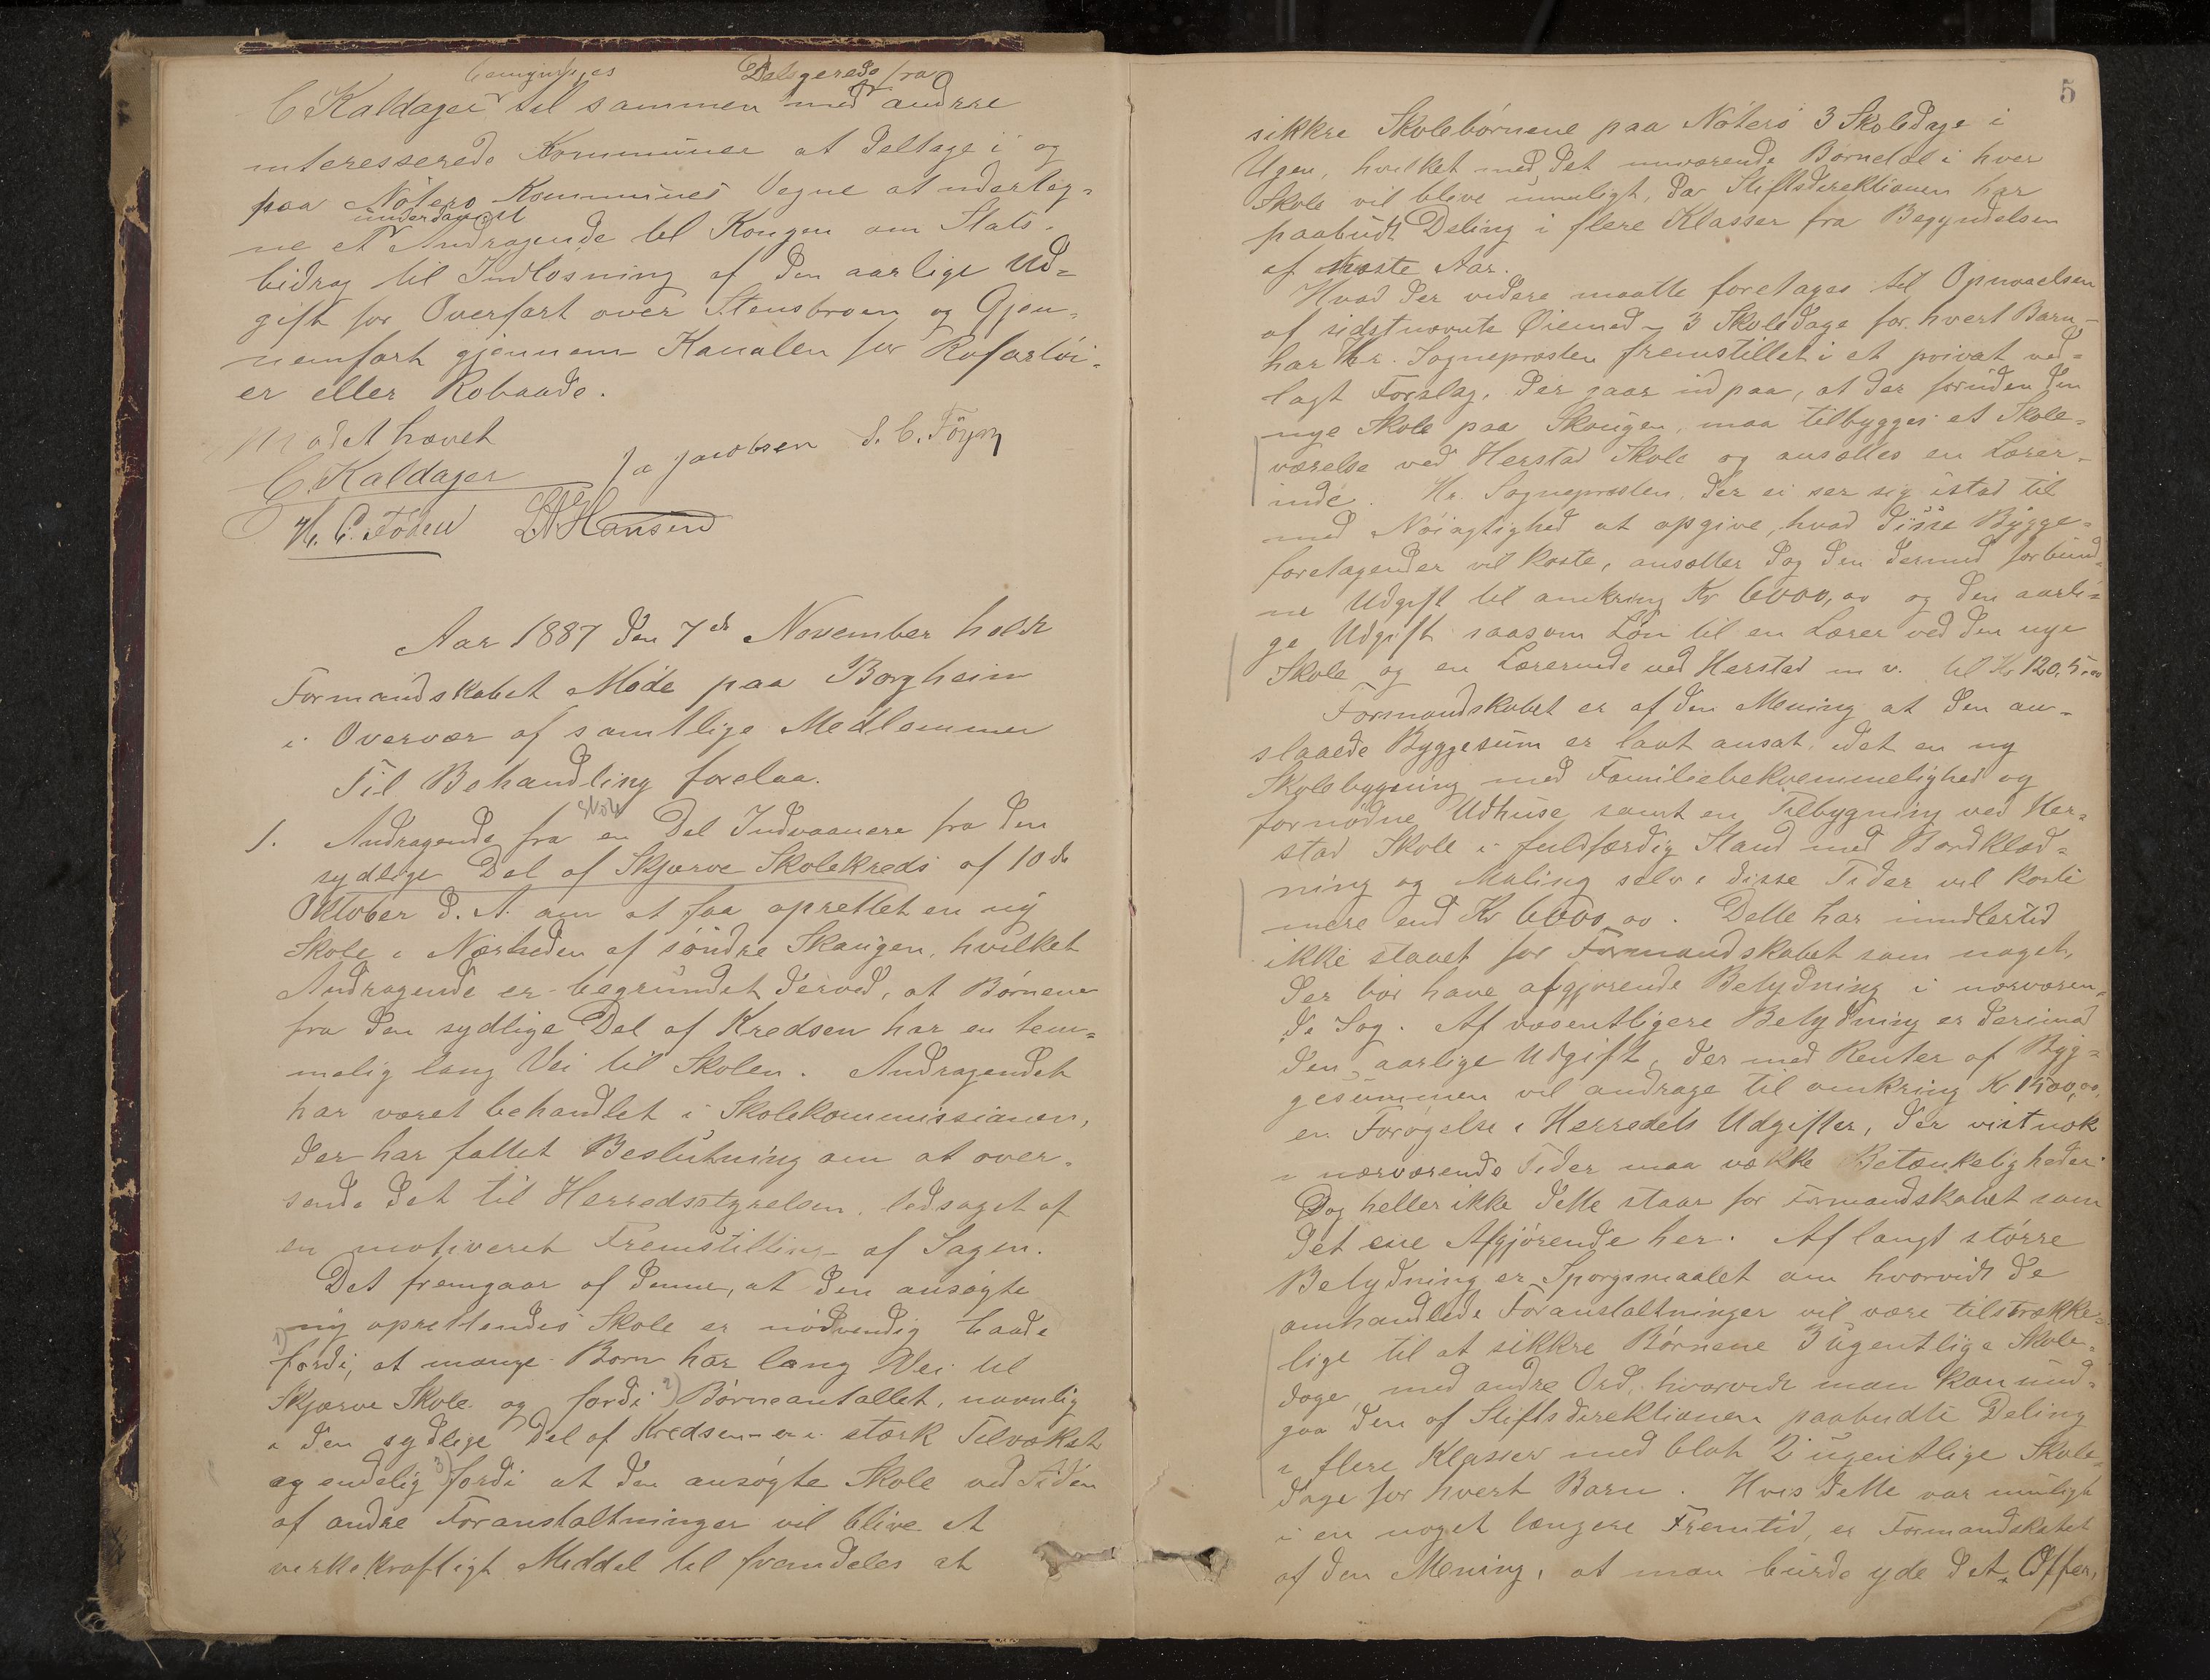 bemyndiges Delegerede fra
C Kaldager til sammen med andre
interesserede Kommuner at deltage i og
paa Nøterø Kommunes Vegne at udarbeg-
underdanigst
ne et Andragende til Kongen om Stats-
bidrag til Indløsning af den aarlige Ud-
gift for Overfart over Stensbroen og Gjen-
nemfart gjennem Kanalen for Rofartøi-
er eller Robaade.
Mødet hævet
C. Kaldager Ja Jacobsen S. C. Föyn
H. C. Foden L A Hansen
Aar 1887 den 7de November holdt
Formandskabet Møde paa Borgheim
i Overvær af samtlige Medlemmer
Til Behandling forelaa.
Skole
1. Andragende fra en Del Indvaanere fra den
sydlige Del af Skjærve Skolekreds af 10de
Oktober d. A. om at faa oprettet en ny
Skole i Nærheden af søndre Skaugen, hvilket
Andragende er begrundet derved, at Børnene
fra den sydlige Del af Kredsen har en tem-
melig lang Vei til Skolen. Andragendet
har været behandlet i Skolekommissionen,
der har fattet Beslutning om at over-
sende det til Herredsstyrelsen, ledsaget af
en motiveret Fremstilling af Sagen.
Det fremgaar af denne, at den ansøgte
ny oprettendes Skole er nødvendig baade
1) fordi, at mange Børn har lang Vei til
Skjærve Skole og fordi 2) Børneantallet, navnlig
i den sydlige Del af Kredsen - er i stærk Tilvækst
og endelig 3) fordi at den ansøgte Skole ved Siden
af andre Foranstaltninger vil blive et
virkekraftigt Middel til fremdeles at
5
sikkre Skolebørnene paa Nøterø 3 Skoledage i
Ugen, hvilket med det nuværende Børnetal i hver
Skole vil blive umuligt, da Stiftsdirektionen har
paabudt Deling i flere Klasser fra Begyndelsen
af næste Aar.
Hvad der videre maatte foretages til Opnaaelsen
af sidstnævnte Øiemed - 3 Skoledage for hvert Barn -
har Hr. Sognepresten fremstillet i et privat ved-
lagt Forslag, der gaar ud paa, at der foruden den
nye Skole paa Skougen, maa tilbygges et Skole-
værelse ved Herstad Skole og ansættes en Lærer-
inde. Hr. Sognepresten, der ei ser sig istad til
med Nøiagtighed at opgive, hvad disse Bygge-
foretagender vil koste, ansætter dog den dermed forbund-
ne Udgift til omkring Kr 6000,00 og den aarli-
ge Udgift saasom Løn til en Lærer ved den nye
Skole og en Lærerinde ved Herstad m v. til Kr 1205,00
Formandskabet er af den Mening at den an-
slaaede Byggesum er lavt ansat, idet en ny
Skolebygning med Familiebekvemmelighed og
fornødne Udhuse samt en Tilbygning ved Her-
stad Skole i fuldfærdig Stand med Bordklæd-
ning og Maling selv i disse Tider vil koste
mere end Kr 6000,00. Dette har imidlertid
ikke staaet for Formandskabet som noget,
der bør have afgjørende Betydning i nærværen-
de Sag. Af væsentligere Betydning er derimod
den aarlige Udgift, der med Renter af Byg-
gesummen vil andrage til omkring Kr 1500,00,
en Forøgelse i Herredets Udgifter, der vistnok
i nærværende Tider maa vække Betænkeligheder.
Dog heller ikke dette staar for Formandskabet som
det ene Afgjørende her. Af langt større
Betydning er Spørgsmaalet om hvorvidt de
omhandlede Foranstaltninger vil være tilstrække-
lige til at sikkre Børnene 3 ugentlige Skole-
dage, med andre Ord, hvorvidt man kan und-
gaa den af Stiftsdirektionen paabudte Deling
i flere Klasser med blot 2 ugentlige Skole-
dage for hvert Barn. Hvis dette var muligt
i en noget længere Fremtid, er Formandskabet
af den Mening, at man burde yde det Offer,